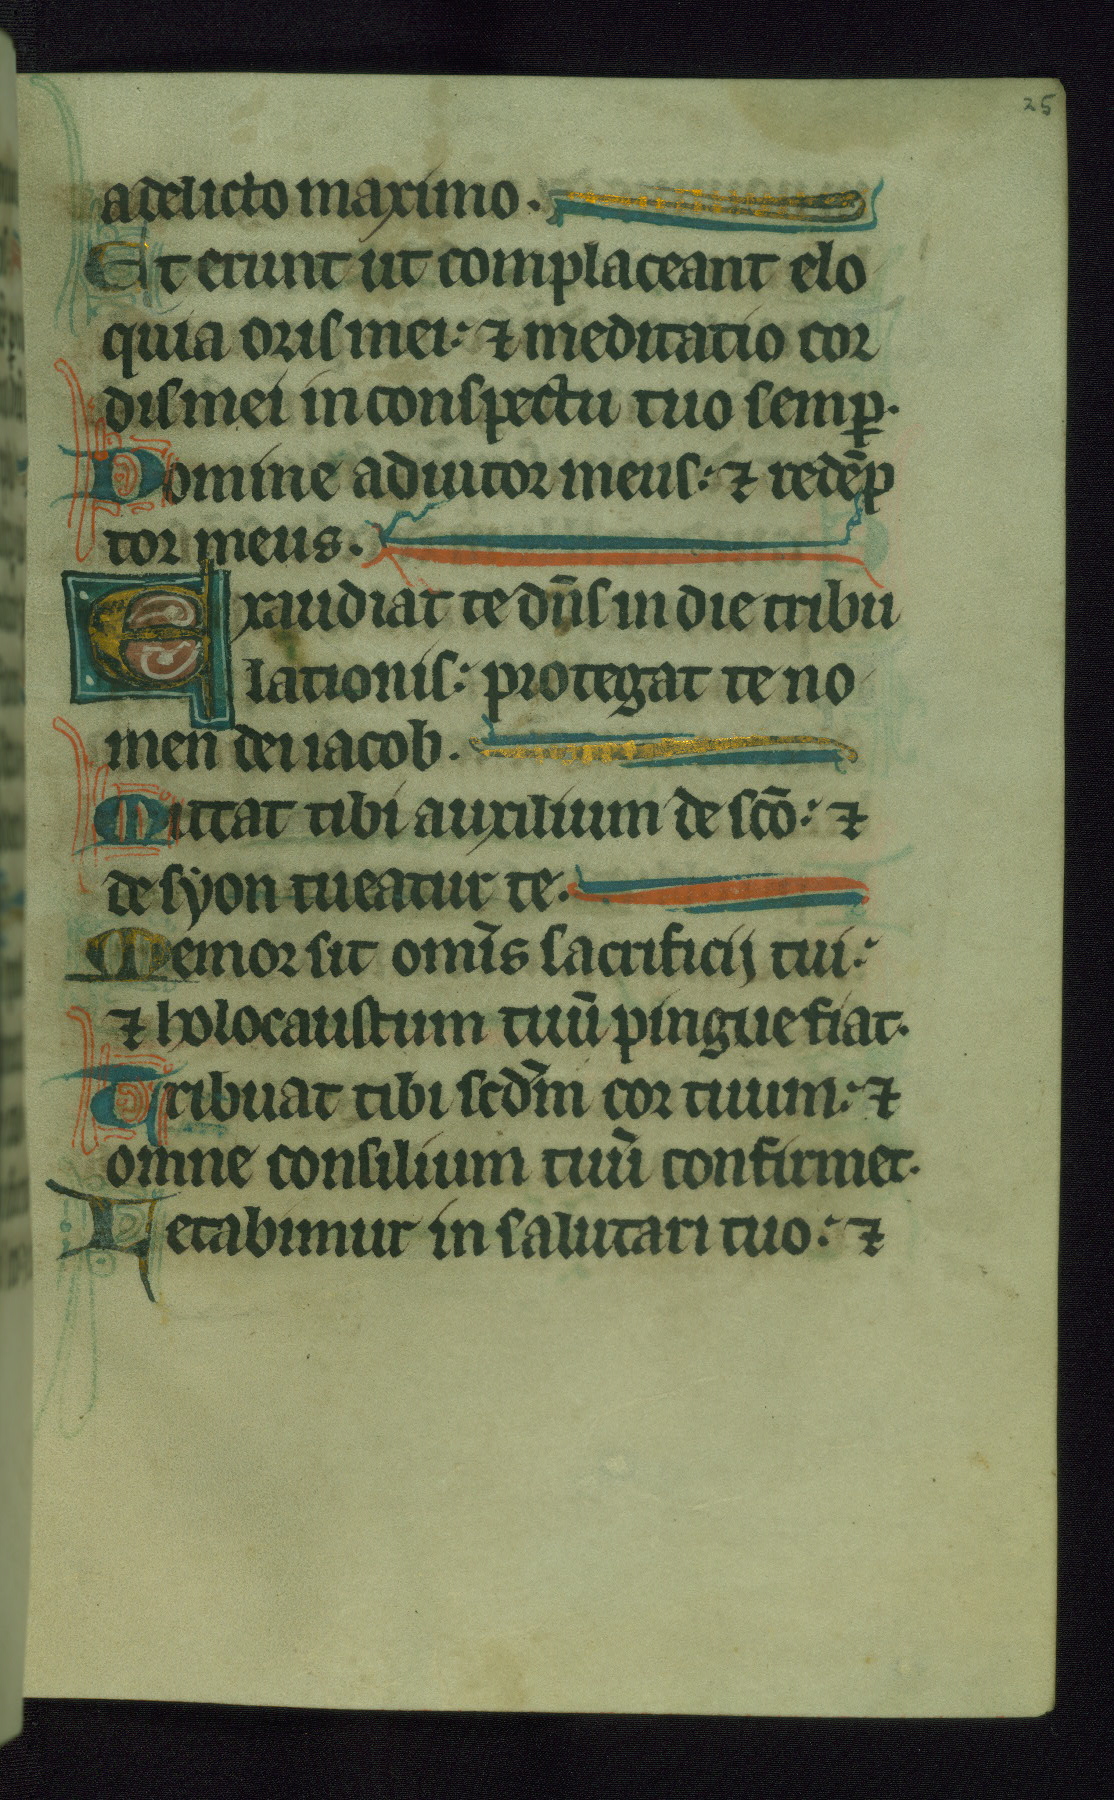 25
a delicto maximo.
Et erunt ut complaceant elo
quia oris mei: ⁊ meditatio cor
dis mei in conspectu tuo semꝑ.
Domine adiutor meus: ⁊ redēp
tor meus.
Exaudiat te dn̄s in die tribu
lationis: protegat te no
men dei iacob.
Mittat tibi auxilium de scō: ⁊
de syon tueatur te.
Memor sit omīs sacrificij tui:
⁊ holocaustum tuū pingue fiat.
Tribuat tibi scdm̄ cor tuum: ⁊
omne consilium tuū confirmet.
Letabimur in salutari tuo: ⁊